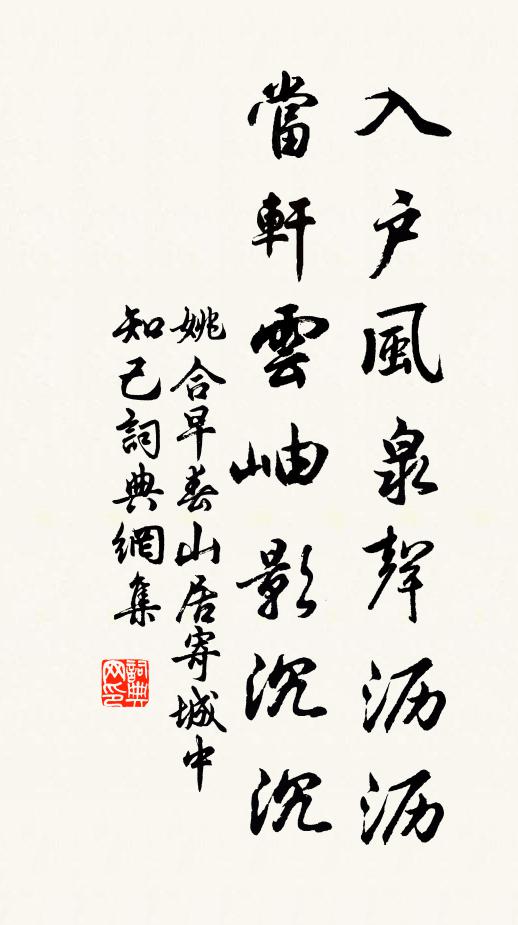 入户風泉聲沥沥
當軒雲岫影沉沉
姚合早春山居寄城中
知己詞典網集
詞典
网印